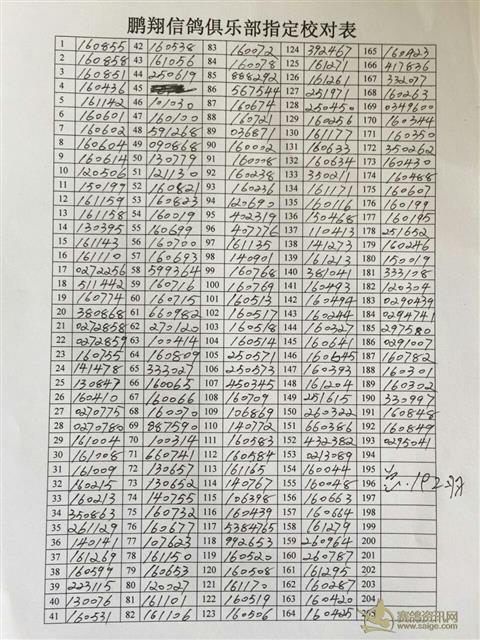 鹏翔信鸽俱乐部指定校对表
1 160855 42 160538 83 160072 124 392467 165 160423
2 160858 43 161056 84 160078 125 161271 166 417836
3 160851 44 250619 85 888292 126 161261 167 332077
4 160436 45 86 567544 127 251971 168 160263
5 161142 46 101030 87 160674 128 250450 169 0349600
6 160601 47 160100 88 160721 129 160256 170 160344
7 160602 48 591268 89 036871 130 161177 171 160350
8 160604 49 090868 90 160002 131 160633 172 350262
9 160614 50 130779 91 160008 132 160634 173 160430
10 120506 51 121130 92 160238 133 350211 174 160488
11 150199 52 160821 93 160236 134 161171 175 160607
12 161159 53 160823 94 120690 135 160116 176 160199
13 161158 54 160019 95 402319 136 150468 177 160195
14 130395 55 160699 96 407776 137 110413 178 251652
15 161143 56 160700 97 161135 138 141273 179 160246
16 161110 57 160693 98 140901 139 161213 180 150019
17 0272256 58 599364 99 160768 140 381041 181 333108
18 511442 59 160716 100 160769 141 160493 182 120304
19 160774 60 160715 101 160513 142 160494 183 0290439
20 380868 61 660982 102 160517 143 160244 184 0294741
21 0272858 62 270120 103 160518 144 160327 185 297580
22 0272859 63 100414 104 160514 145 160641 186 0291007
23 160755 64 160809 105 250571 146 160645 187 160782
24 141478 65 333027 106 250573 147 160393 188 160301
25 130847 66 160065 107 450345 148 161204 189 160302
26 160410 67 160066 108 160709 149 251615 190 330997
27 0270775 68 160070 109 106869 150 260322 191 160848
28 0270780 69 887590 110 140772 151 660386 192 160849
29 161004 70 100314 111 160583 152 432382 193 0295041
30 161008 71 660741 112 160584 153 0213089 194
31 161009 72 130657 113 161165 154 160044 195
32 160215 73 130652 114 140767 155 160048 196 192羽
33 160213 74 140755 115 106398 156 160663 197
34 350863 75 160732 116 160439 157 160664 198
35 261129 76 160677 117 5384765 158 161279 199
36 140141 77 107623 118 992653 159 260964 200
37 161269 78 161150 119 160520 160 260787 201
38 160599 79 160653 120 160508 161 161295 202
39 223115 80 120027 121 161170 162 160287 203
40 130076 81 161101 122 160519 163 160420 204
41 160531 82 161106 123 160506 164 160425 205
赛鸽资讯网
www.saige.com